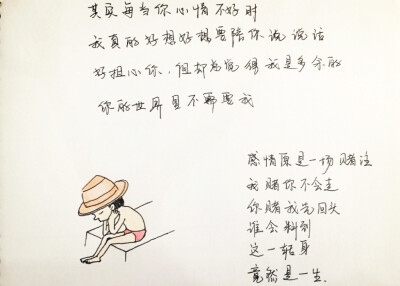 其实每当你心情不好时
我真的好想好想要陪你说说话
好担心你，但却总觉得我是多余的
你的世界里不再要我
感情原是一场赌注
我赌你不会走
你赌我先回头
谁会料到
这一转身
竟然是一生.